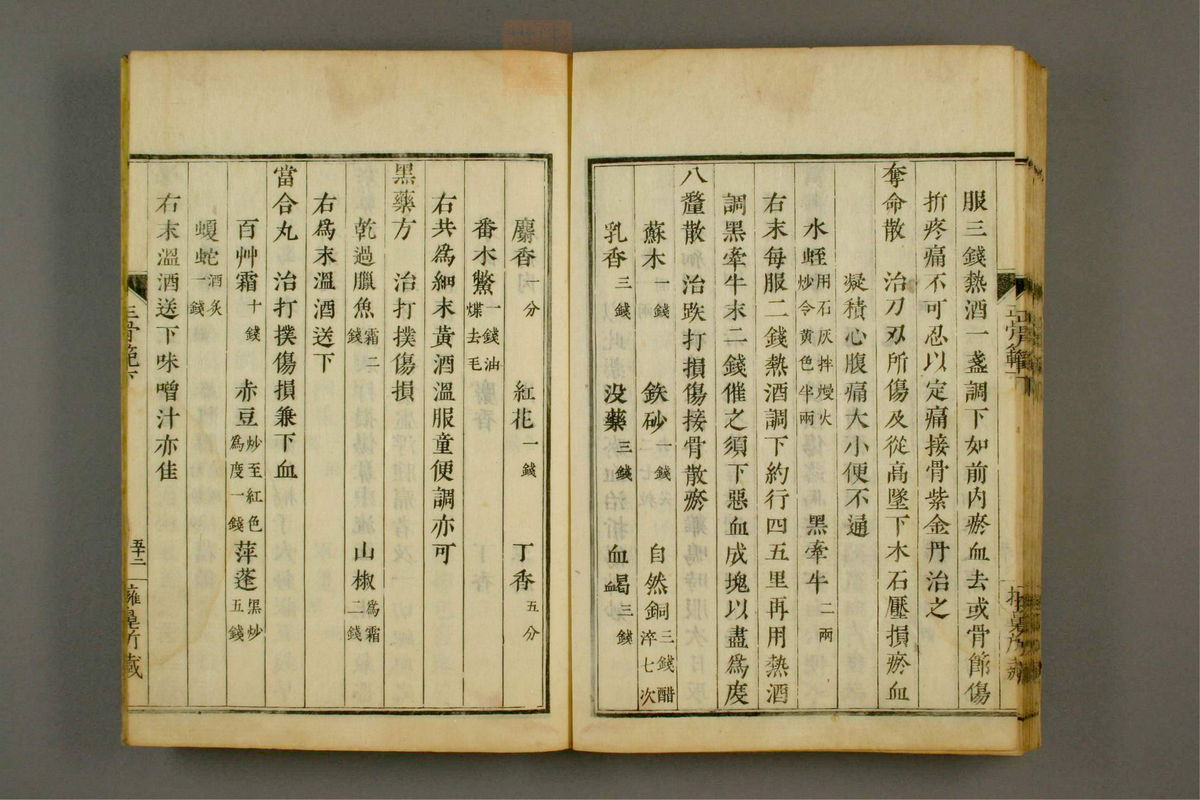 服三錢熱酒一盞調下如前內瘀血去或骨節傷
折疼痛不可忍以定痛接骨紫金丹治之
奪命散　治刀刃所傷及從高墜下木石壓損瘀血
凝積心腹痛大小便不通
水蛭用石灰拌熳火炒令黄色半兩　黑牽牛二兩
右末每服二錢熱酒調下約行四五里再用熱酒
調黑牽牛末二錢催之須下惡血成塊以盡爲度
八釐散　治跌打損傷接骨散瘀
蘇木一錢　鉄砂一錢　自然銅三錢醋淬七次
乳香三錢　没藥三錢　血竭三錢
骨範下
麝香一分　紅花一錢　丁香五分
番木鱉一錢油煠去毛
右共爲細末黃酒溫服童便調亦可
黑藥方　治打撲傷損
乾過臘魚霜二錢　山椒爲霜二錢
右爲末溫酒送下
當合丸　治打撲傷損兼下血
百艸霜十錢　赤豆炒至紅色爲度一錢　萍蓬黑炒五錢
蝮蛇酒炙一錢
右末溫酒送下味噌汁亦佳
骨範下
五十二